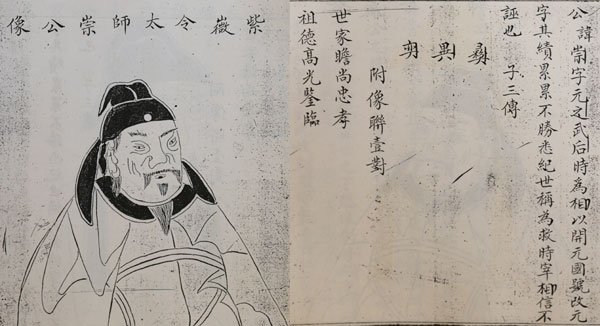 公諱崇字元之武后時為相以開元國號改元
字其績累累不勝悉紀世稱為救時宰相信不
誣也 子三傳
彝 異
附像聯壹對
世家瞻尚忠孝
祖德高光鑒臨
紫薇令太師崇公像